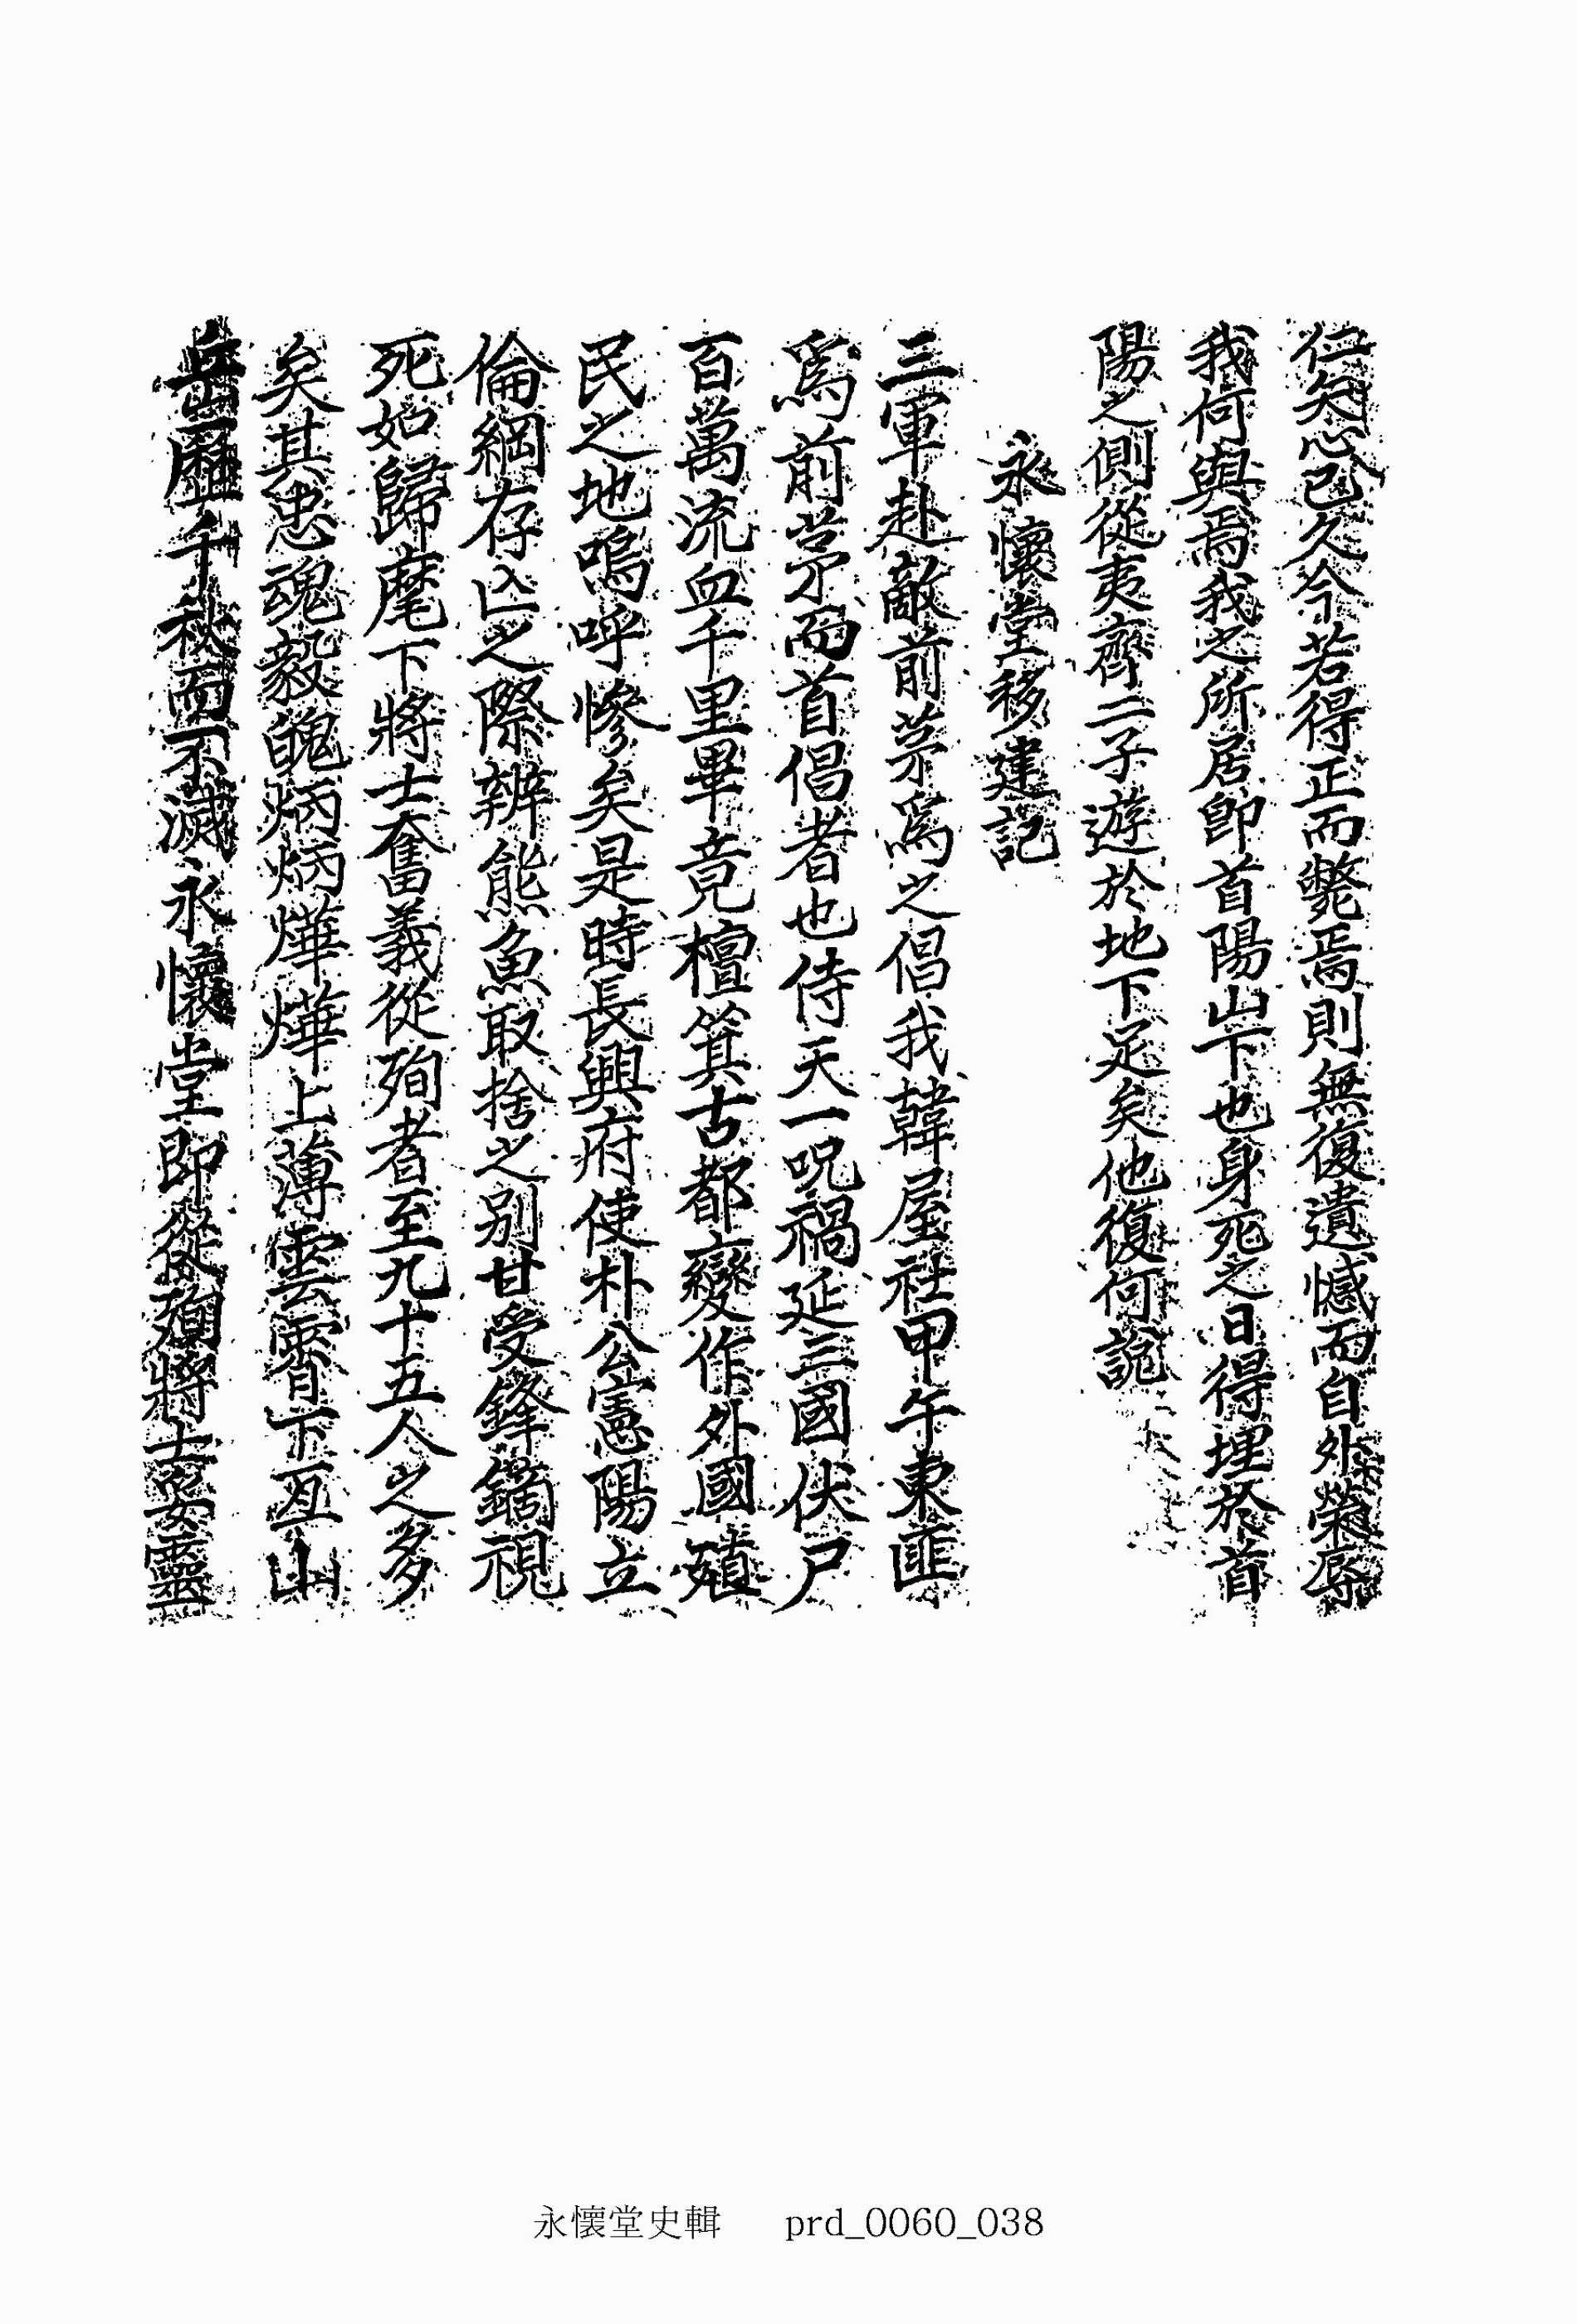 仁矣心已久今若得正而斃焉則無復遺憾而自外榮辱
我何與焉我之所居卽首陽山下也身死之日得埋於首
陽之側從夷齊二子遊於地下足矣他復何說
永懷堂移建記
三軍赴敵前茅爲之倡我韓屋社甲午東匪
爲前茅而首倡者也侍天一呪禍延三國伏尸
百萬流血千里畢竟檀箕古都變作外國殖
民之地嗚呼慘矣是時長興府使朴公憲陽立
倫綱存亡之際辨熊魚取捨之別甘受鋒鏑視
死如歸麾下將士奮義從殉者至九十五人之多
矣其忠魂毅魄炳炳燁燁上薄雲霄下亙山
岳歷千秋而不滅永懷堂卽從殉將士妥靈
永懷堂史輯 prd_0060_038